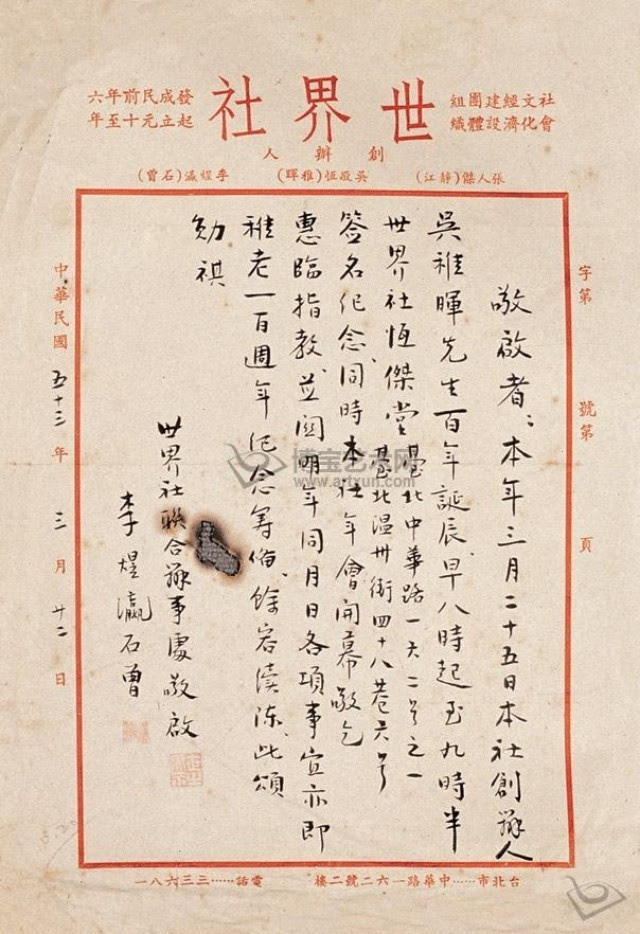 社會文化經濟建設團體組織
世界社
發起成立民元前十年至六年
創辦人
張人傑(靜江) 吳敬恆(稚暉) 李煜瀛(石曾)
字第 號第 頁
敬啟者:本年三月二十五日本社創辦人
吳稚暉先生百年誕辰,早八時起至九時半
世界社恆傑堂 臺北中華路一六二号之一
臺北温州街四十八巷六号
簽名紀念,同時本社年會開幕敬乞
惠臨指教,並關明年同月日各項事宜亦即
稚老一百週年紀念籌備,餘容續陳,此頌
勛祺
世界社聯合辦事處敬啟
李煜瀛石曾
中華民國五十三年三月廿二日
台北市……中華路一六二號二樓 電話……三三六八一
博宝艺术网
www.artxun.com